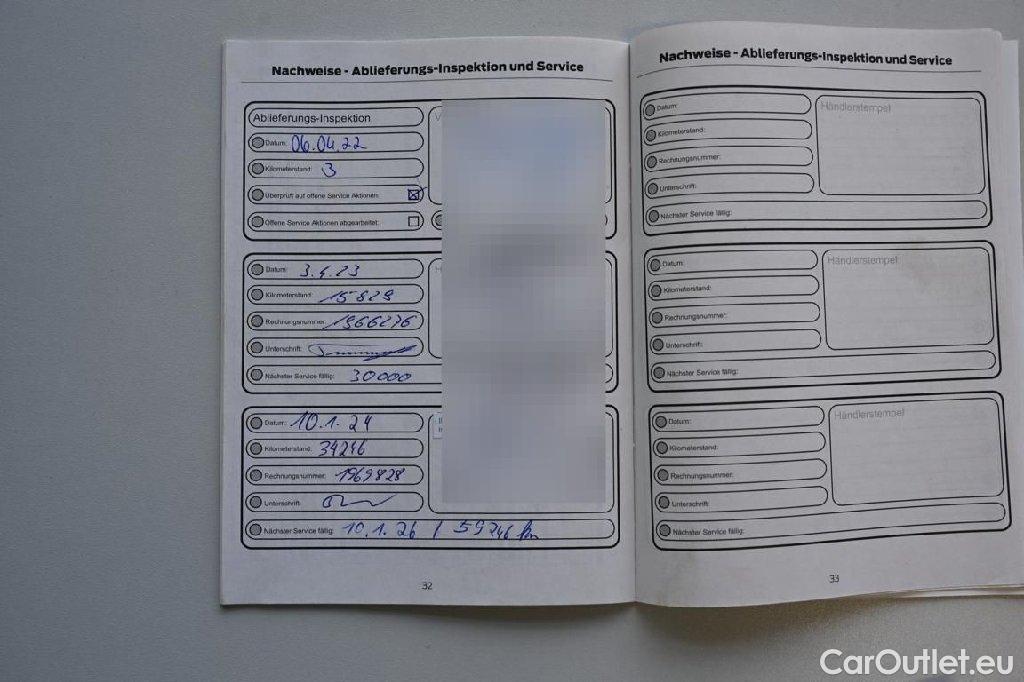 Nachweise - Ablieferungs-Inspektion und Service
Ablieferungs-Inspektion
Datum: 06.04.22
Kilometerstand: 3
Überprüft auf offene Service Aktionen:
Offene Service Aktionen abgearbeitet:
Datum: 3.4.23
Kilometerstand: 15829
Rechnungsnummer: 1966276
Unterschrift:
Nächster Service fällig: 30000
Datum: 10.1.24
Kilometerstand: 34246
Rechnungsnummer: 1969828
Unterschrift:
Nächster Service fällig: 10.1.26 / 59246 km
32
Nachweise - Ablieferungs-Inspektion und Service
Datum:
Händlerstempel
Kilometerstand:
Rechnungsnummer:
Unterschrift:
Nächster Service fällig:
Datum:
Händlerstempel
Kilometerstand:
Rechnungsnummer:
Unterschrift:
Nächster Service fällig:
Datum:
Händlerstempel
Kilometerstand:
Rechnungsnummer:
Unterschrift:
Nächster Service fällig:
33
CarOutlet.eu